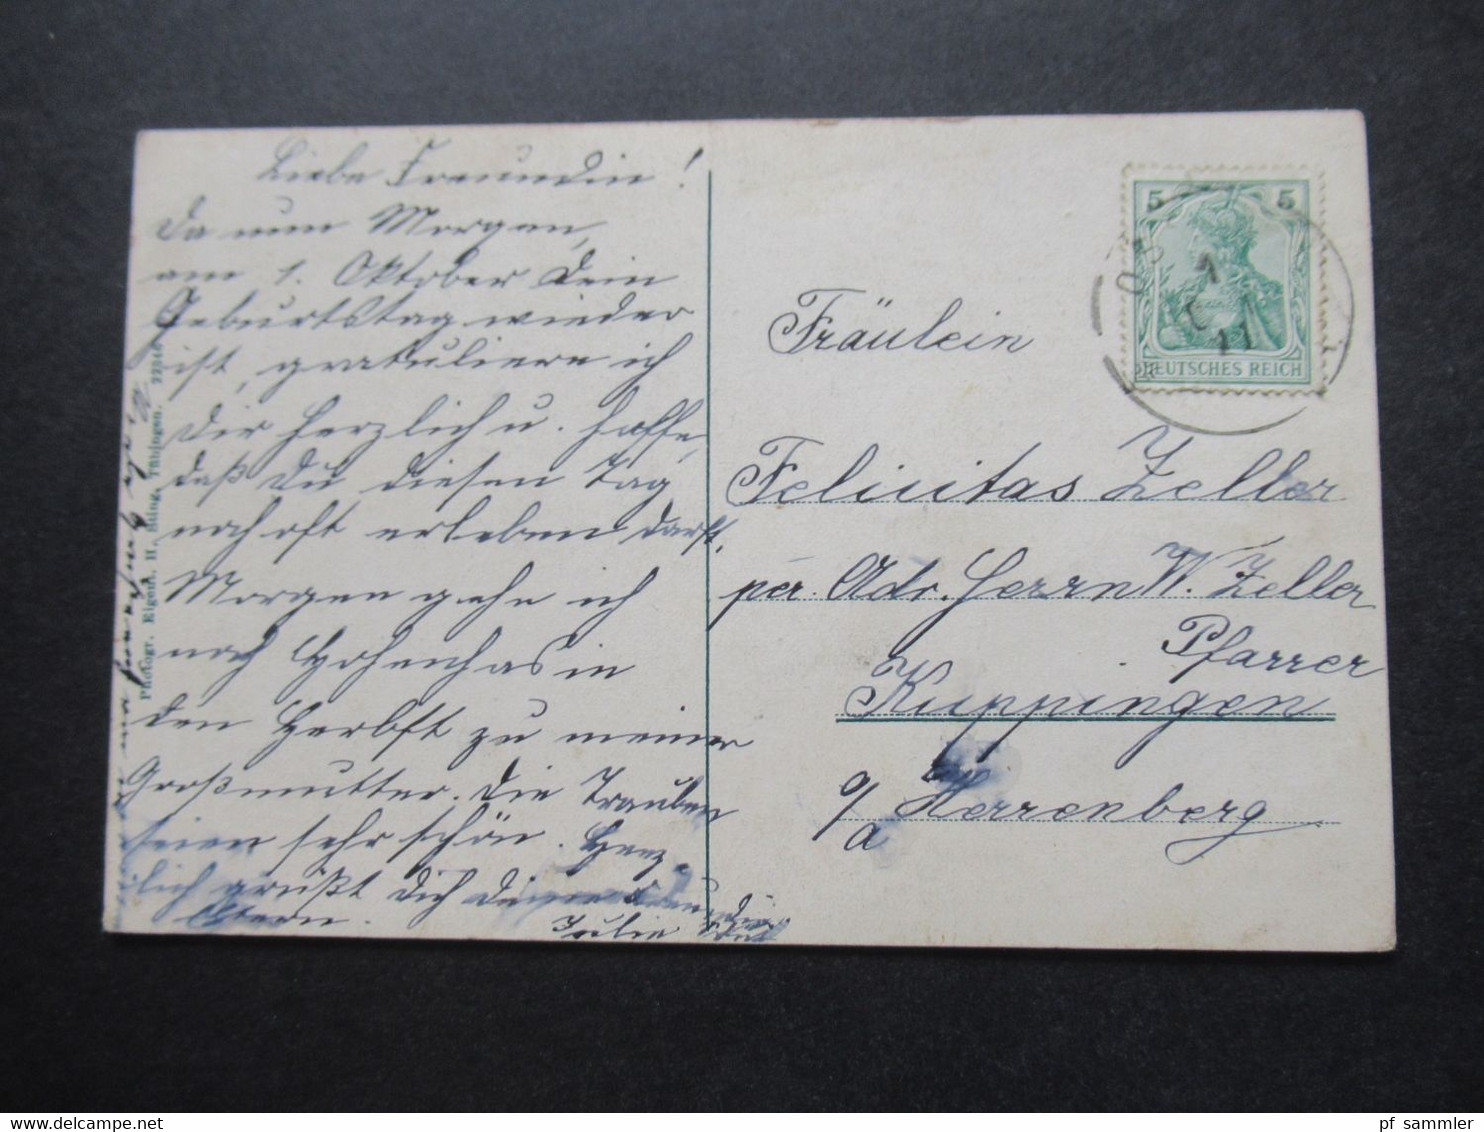 Liebe Freundin!
Da nun Morgen,
am 1. Oktober Dein
Geburtstag wieder
ist, gratuliere ich
Dir herzlich u. hoffe,
daß Du diesen Tag
noch oft erleben darfst.
Morgen gehe ich
nach Hohenhas in
den Herbst zu meiner
Großmutter. Die Trauben
seien sehr schön. Herz-
lich grüßt Dich Deine Freundin
Julie
Photogr. Eigent. H. Sting, Tübingen.
5 5
DEUTSCHES REICH
1
11
Fräulein
Felicitas Zeller
per. Adr. Herrn W. Zeller
Pfarrer
Kuppingen
o/a Herrenberg
pf_sammler
delcampe.net